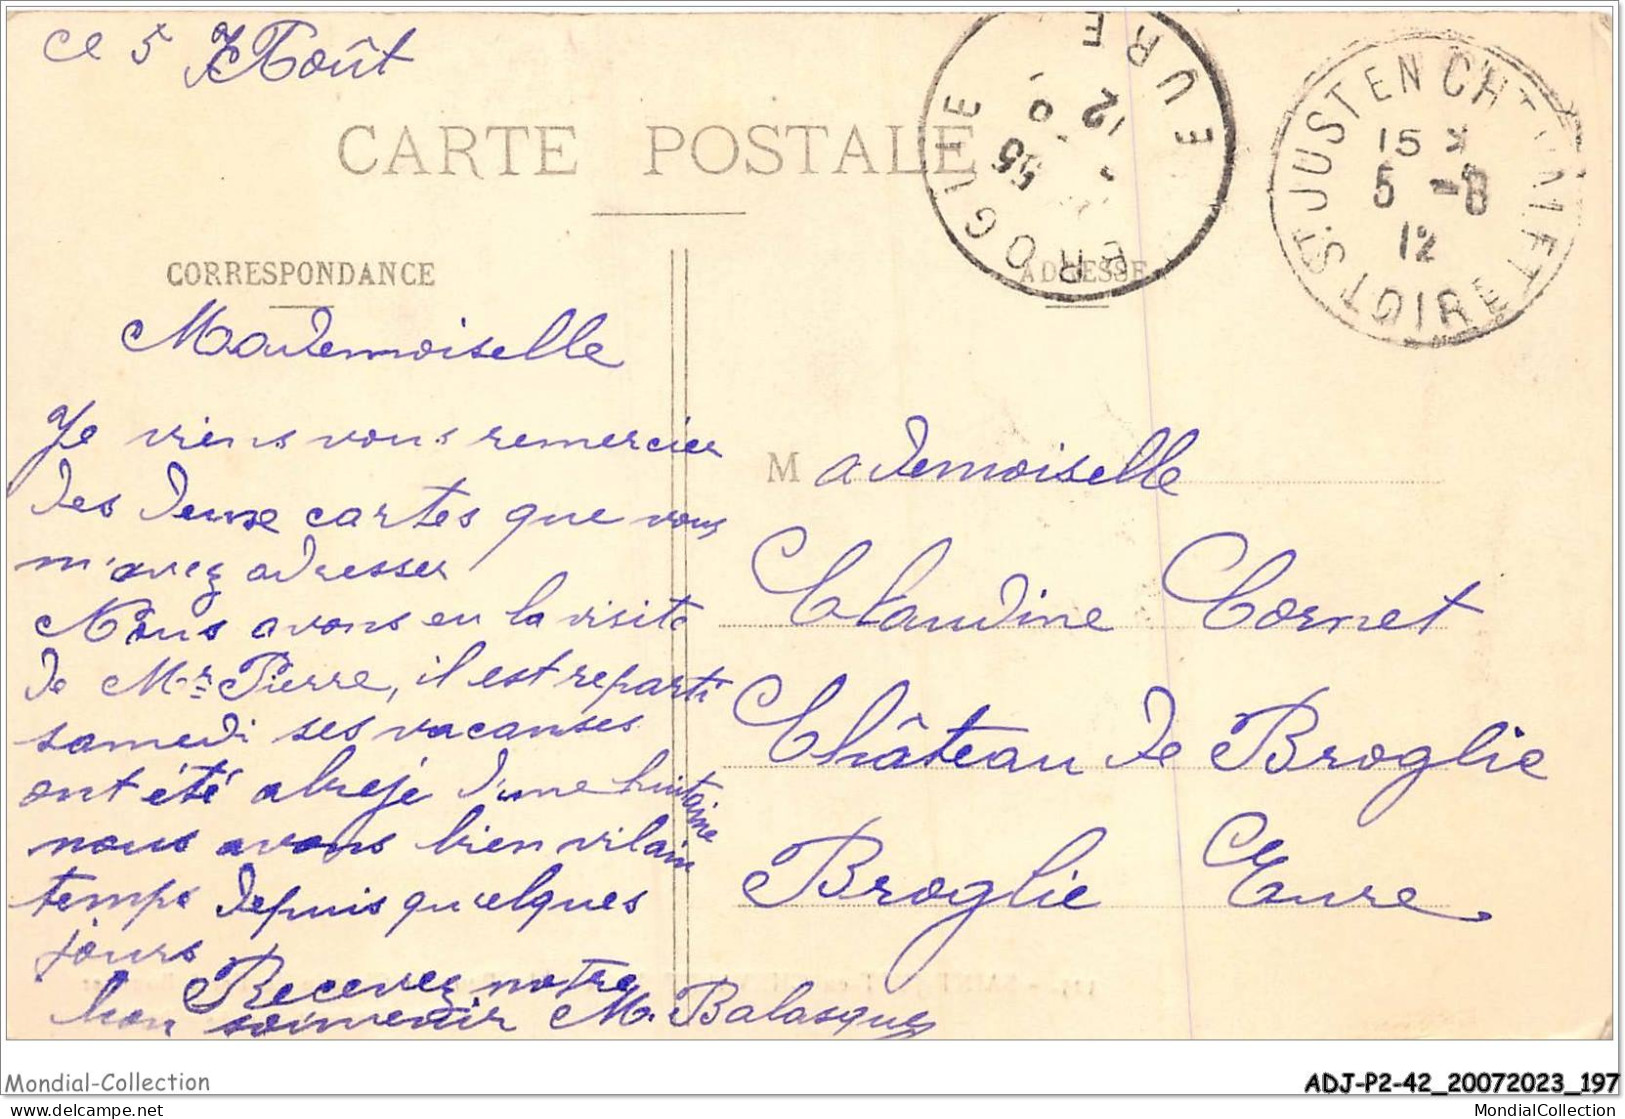 Ce 5 Août
CARTE POSTALE
CORRESPONDANCE
ADRESSE
BROGLIE
EURE
12
55
ST JUST EN CHEVALET
15
5 -8
12
LOIRE
Mademoiselle
Je viens vous remercier
des deux cartes que vous
m'avez adresser
Nous avons eu la visite
de Mr Pierre, il est reparti
samedi ses vacanses
ont été abrejé d'une huitaine
nous avons bien vilain
temps depuis quelques
jours
Recevez notre
bon souvenir M. Balasques
Mademoiselle
Claudine Cornet
Château de Broglie
Broglie Eure
Mondial-Collection
ADJ-P2-42_20072023_197
delcampe.net
MondialCollection